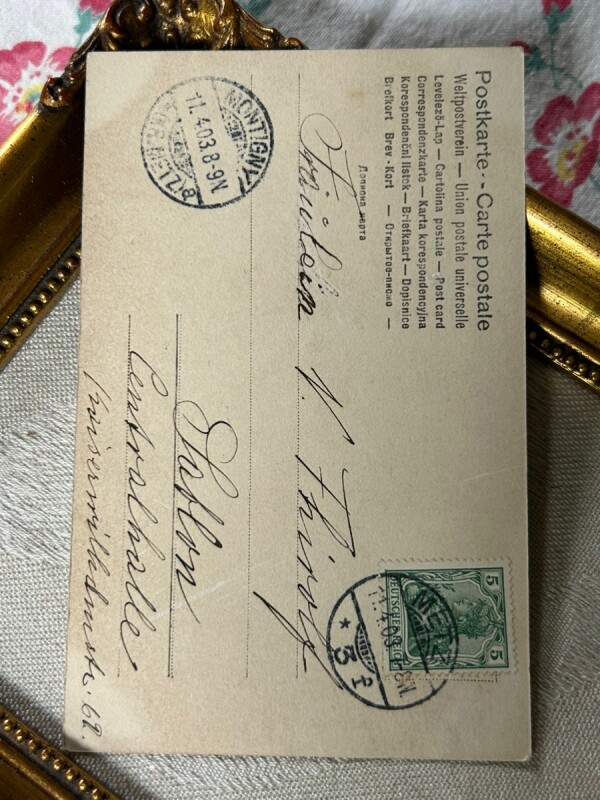 Postkarte - - Carte postale
Weltpostverein — Union postale universelle
Levelező-Lap — Cartolina postale — Post card
Correspondenzkarte — Karta korespondencyjna
Korespondenční listek — Briefkaart — Dopisnice
Brefkort Brev-Kort — Открытое-письмо —
Дописна карта
MONTIGNY
11.4.03.8-9N
(BZ. METZ)
5 5
DEUTSCHES REICH
METZ
11.4.03.
* 5 f
Fräulein V.
Sablon
Centralhalle
Kaiserwilhelmstr. 62.